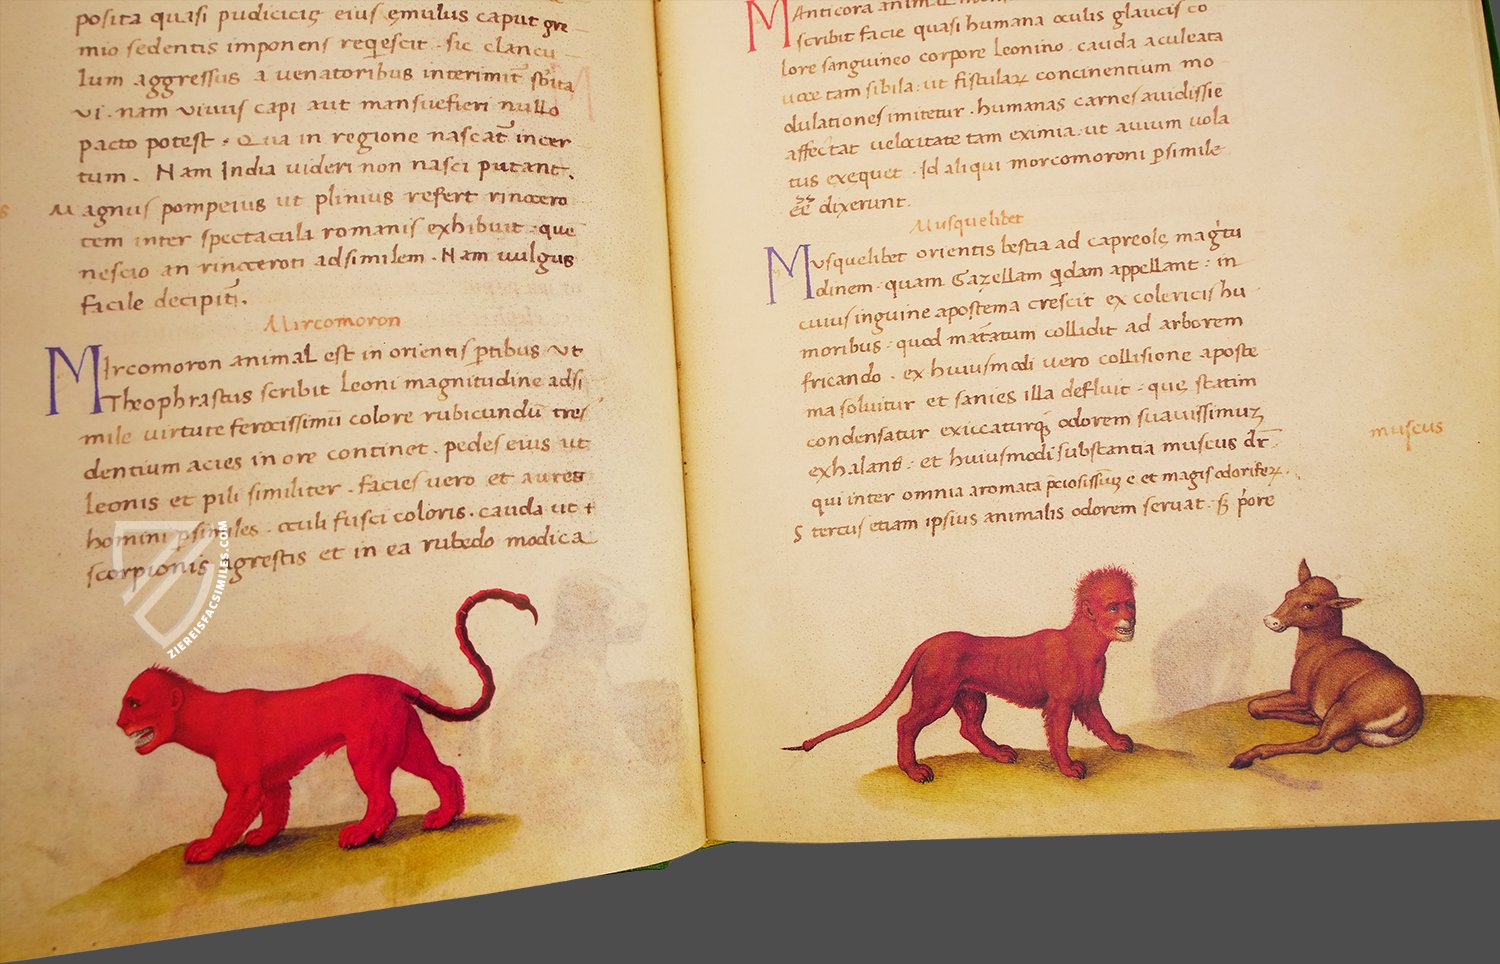 posita quasi pudiciciȩ eius ȩmulus caput gre
mio sedentis imponens reqescit . sic clancu
lum aggressus a venatoribus interimit̃ sbita
vi . nam vivus capi aut mansuefieri nullo
pacto potest . Qua in regione nascat̃ incer
tum . Nam India videri non nasci putant .
Magnus pompeius ut plinius refert rinocero
tem inter spectacula romanis exhibuit . que
nescio an rinoceroti adsimilem . Nam vulgus
facile decipit̃ .
Mircomoron
MIrcomoron animal est in orientis ptibus ut
Theophrastus scribit leoni magnitudine adsi
mile virtute ferocissimũ colore rubicundũ tres
dentium acies in ore continet . pedes eius ut
leonis et pili similiter . facies vero et aures
homini psimiles . oculi fusci coloris . cauda ut
scorpionis agrestis et in ea rubedo modica
ZIEREISFACSIMILES.COM
MAnticora
scribit facie quasi humana oculis glaucis co
lore sanguineo corpore leonino . cauda aculeata
voce tam sibila : ut fistulaꝝ concinentium mo
dulationes imitetur . humanas carnes avidissie
affectat velocitate tam eximia ut avium vola
tus exequet . Id aliqui morcomoroni psimile
ẽẽ dixerunt .
Musquelibet
MVsquelibet orientis bestia ad capreolȩ magtu
dinem . quam Gazellam qdam appellant : in
cuius inguine apostema crescit ex colericis hu
moribus . quod matatum collidit ad arborem
fricando . ex huiusmodi vero collisione aposte
ma solvitur et sanies illa defluit . quȩ statim
condensatur exiccaturq; odorem suavissimuz
exhalans . et huiusmodi substantia muscus dr̃
muscus
qui inter omnia aromata pciosissimũ e et magis odoriferꝝ .
Stercus etiam ipsius animalis odorem servat . Sʒ pore